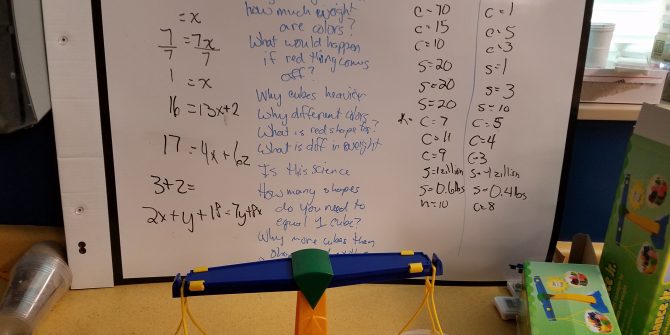 = x
7/7 = 7x/7
1 = x
16 = 13x+2
17 = 4x+6z
3+2=
2x+y+18=7y+8x
how much weight
are colors?
What would happen
if red thing comes
off?
Why cubes heavier
Why different colors
What is red shape for?
What is diff in weight
Is this science
How many shapes
do you need to
equal 1 cube?
Why more cubes then
c=70
c=15
c=10
s=20
s=20
s=20
c=7
c=11
c=9
s=1zillion
s=0.6lbs
n=10
c=1
c=5
c=3
s=1
s=3
s=10
c=5
c=4
c3
s=-1zillion
s=0.4lbs
c=8